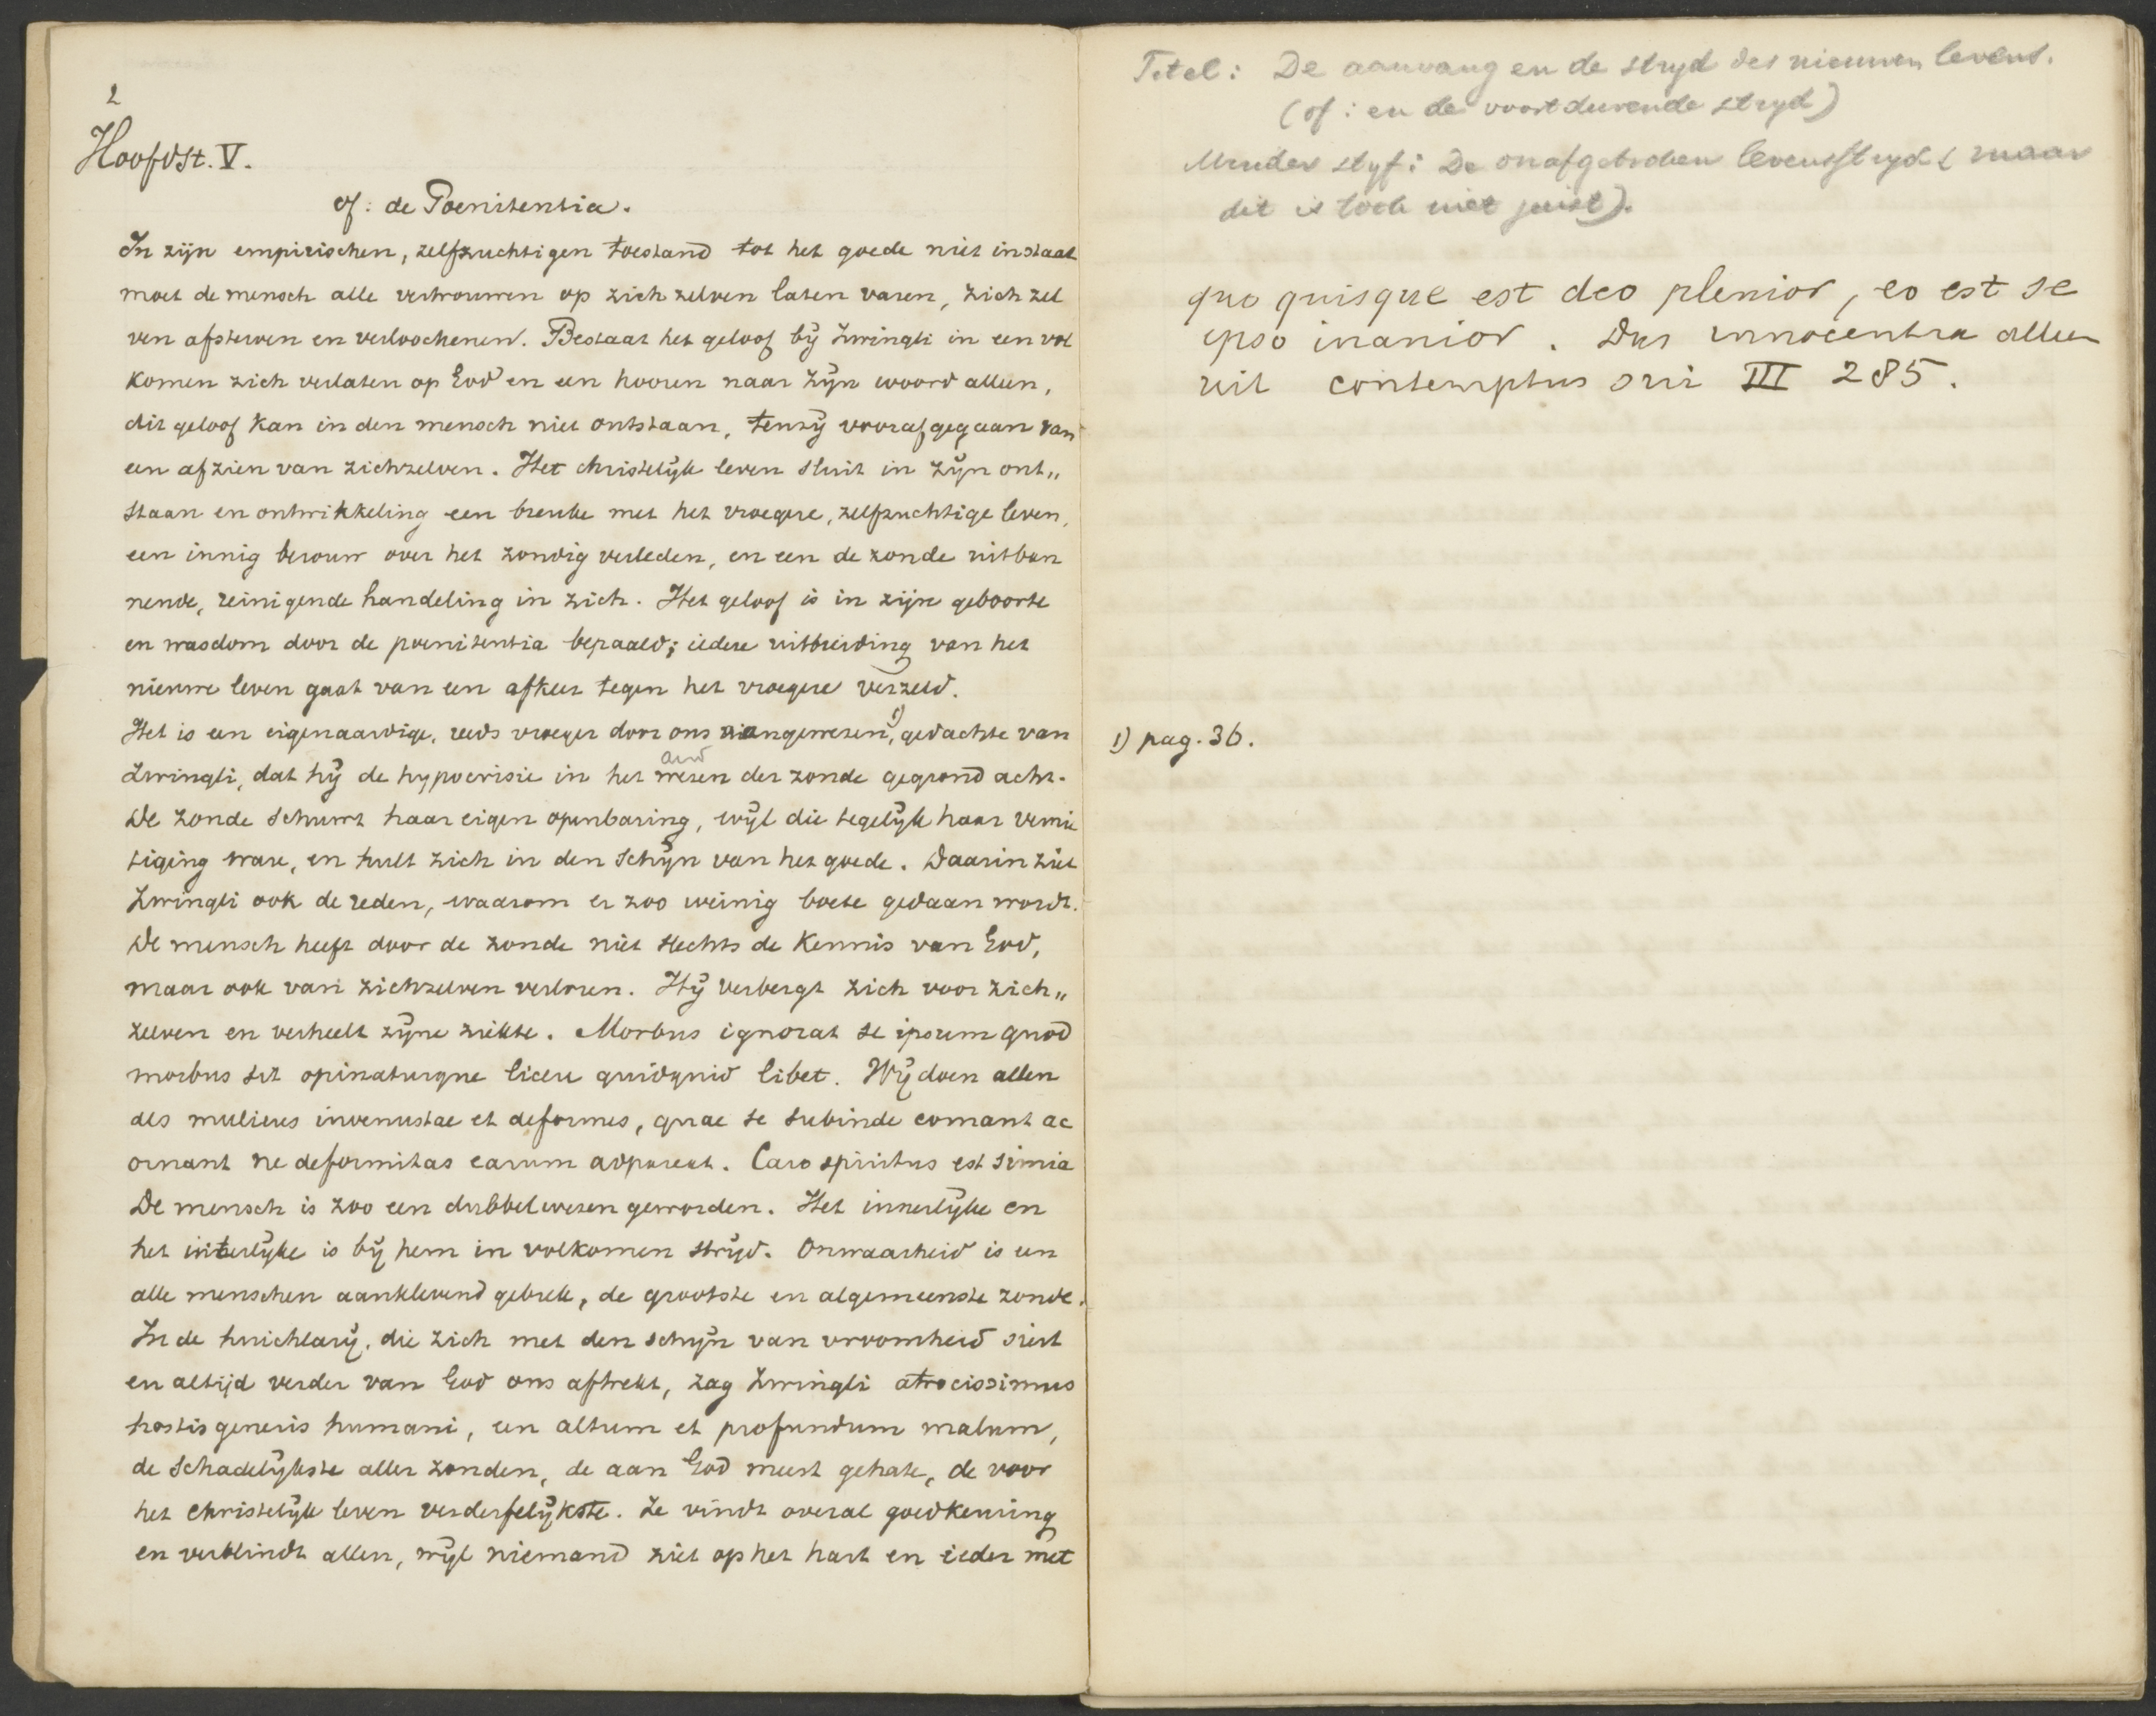 2
Hoofdst. V.
of: de Poenitentia.
In zijn empirischen, zelfzuchtigen toestand tot het goede niet in staat
moet de mensch alle vertrouwen op zich zelven laten varen, zich zel
ven afsterven en verloochenen. Bestaat het geloof bij Zwingli in een vol
komen zich verlaten op God en een hooren naar Zijn woord alleen,
dit geloof kan in den mensch niet ontstaan, tenzij voorafgegaan van
een afzien van zichzelven. Het christelijk leven sluit in zijn ont„
staan en ontwikkeling een breuke met het vroegere, zelfzuchtige leven,
een innig berouw over het zondig verleden, en een de zonde uitban
nende, reinigende handeling in zich. Het geloof is in zijn geboorte
en wasdom door de poenitentia bepaald; iedere uitbreiding van het
nieuwe leven gaat van een afkeer tegen het vroegere verzeld.
Het is een eigenaardige, reeds vroeger door ons aangewezen, 1) gedachte van
Zwingli, dat hij de hypocrisie in het wezen der zonde gegrond acht.
De zonde schuwt haar eigen openbaring, wijl die tegelijk haar vernie
tiging ware, en hult zich in den schijn van het goede. Daarin ziet
Zwingli ook de reden, waarom er zoo weinig boete gedaan wordt.
De mensch heeft door de zonde niet slechts de kennis van God,
maar ook van zichzelven verloren. Hij verbergt zich voor zich„
zelven en verheelt zijne ziekte. Morbus ignorat se ipsum quod
morbus sit opinaturque licere quidquid libet. Wij doen allen
als mulieres invenustae et deformes, quae se subinde comant ac
ornant ne deformitas earum adpareat. Caro spiritus est simia
De mensch is zoo een dubbelwezen geworden. Het innerlijke en
het uiterlijke is bij hem in volkomen strijd. Onwaarheid is een
alle menschen aanklevend gebrek, de grootste en algemeenste zonde.
In de huichlarij, die zich met den schijn van vroomheid siert
en altijd verder van God ons aftrekt, zag Zwingli atrocissimus
hostis generis humani, een altum et profundum malum,
de schadelijkste aller zonden, de aan God meest gehate, de voor
het christelijk leven verderfelijkste. Ze vindt overal goedkeuring
en verblindt allen, wijl niemand ziet op het hart en ieder met
Titel: De aanvang en de strijd des nieuwen levens.
(of: en de voortdurende strijd)
Minder styf: De onafgebroken levensstryd (maar
dit is toch niet juist).
quo quisque est deo plenior, eo est se
ipso inanior. Dus innocentia alleen
uit contemptus sui III 285.
1) pag. 36.